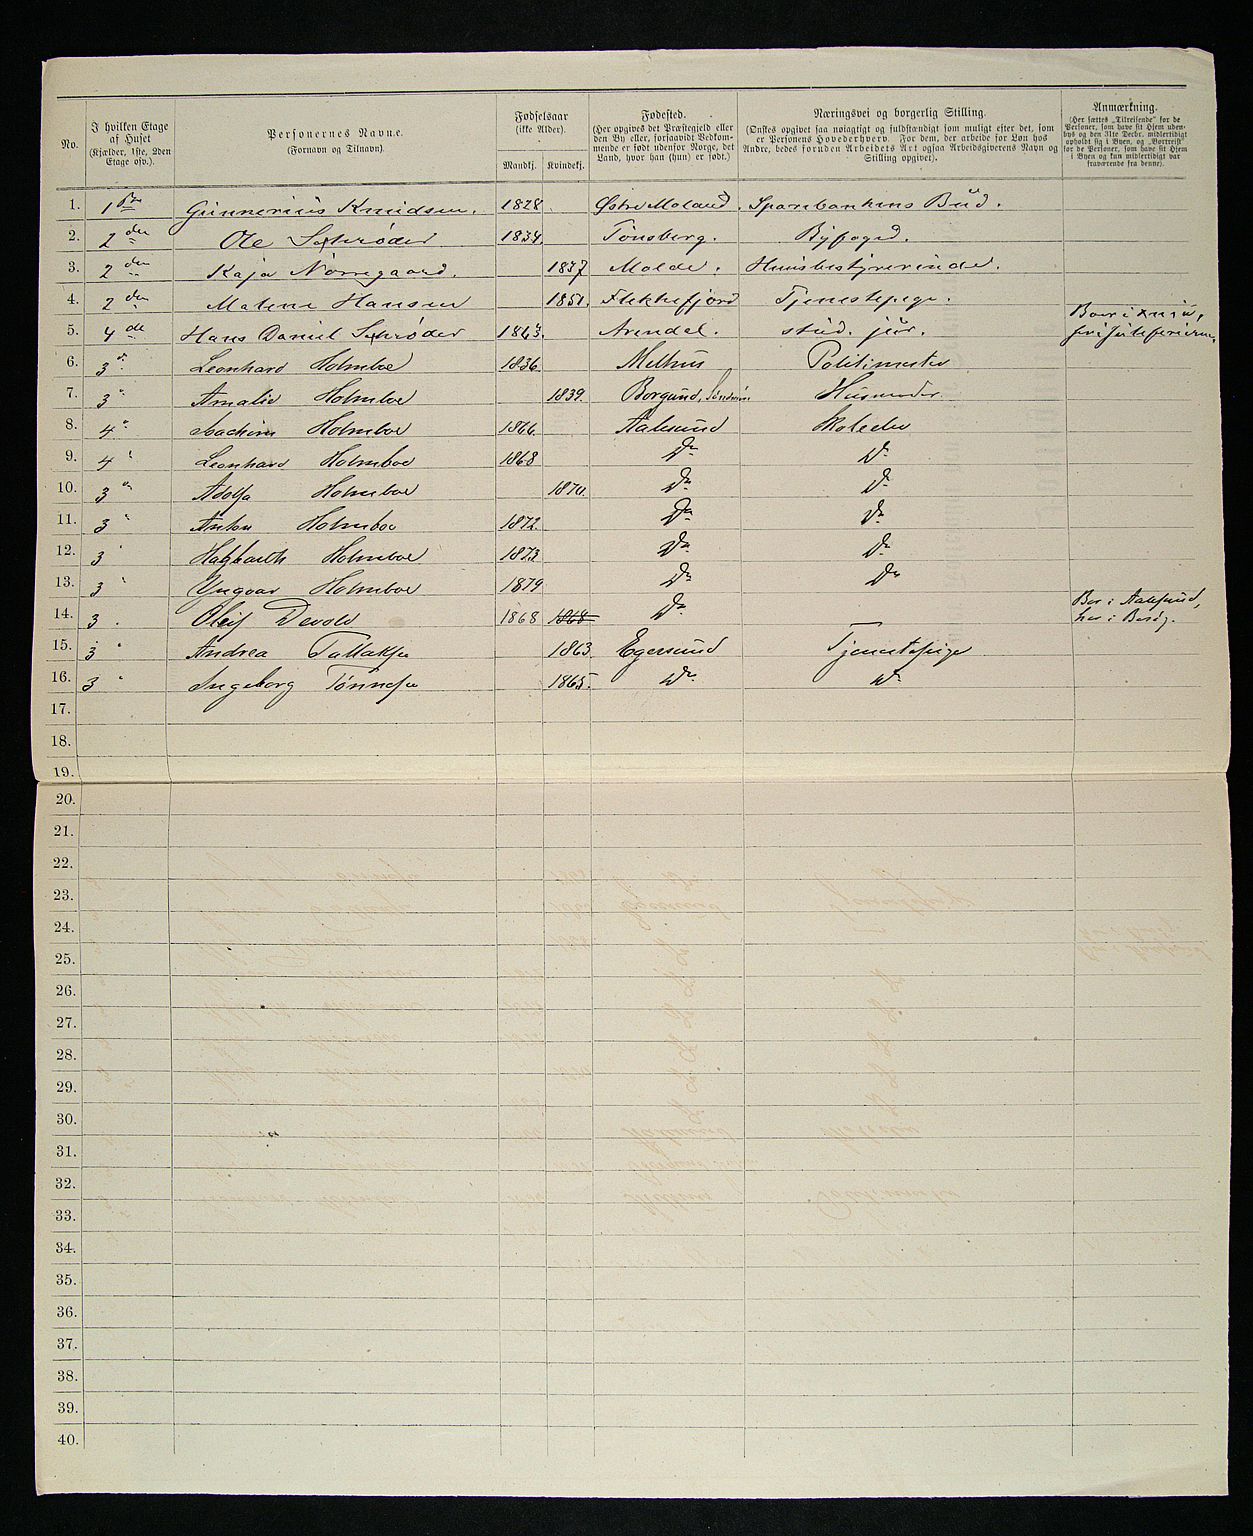 No.
I hvilken Etage
af Huset
(Kjælder, 1ste, 2den
Etage osv.).
Personernes Navne.
(Fornavn og Tilnavn).
Fødselsaar
(ikke Alder).
Mandkj. Kvindekj.
Fødested.
(Her opgives det Præstegjeld eller
den By eller, forsaavidt Vedkom-
mende er født udenfor Norge, det
Land, hvor han (hun) er født.)
Næringsvei og borgerlig Stilling.
(Ønskes opgivet saa nøiagtigt og fuldstændigt som muligt efter det, som
er Personens Hovederhverv. For dem, der arbeide for Løn hos
Andre, bedes foruden Arbeidets Art ogsaa Arbeidsgiverens Navn og
Stilling opgivet).
Anmærkning.
(Her sættes „Tilreisende“ for de
Personer, som have sit Hjem uden-
bys og den 31te Decbr. midlertidigt
opholdt sig i Byen, og „Bortreist“
for de Personer, som have sit Hjem
i Byen og kun midlertidigt var
fraværende fra denne).
1. 1ste Gunnerius Knudsen. 1828 Østre Moland. Sparebankens Bud.
2. 2den Ole Schrøder 1834. Tønsberg. Byfoged.
3. 2den Kaja Nørregaard. 1837 Molde. Huusbestyrerinde.
4. 2den Malene Hansen 1851. Flekkefjord Tjenestepige.
5. 4de Hans Daniel Schrøder 1863. Arendal. stud. jur. Boer i
6. 3die Leonhard Holmboe 1836. Melhus Politimester
7. 3" Amalie Holmboe 1839. Borgund, Husmoder.
8. 4" Joachim Holmboe 1866. Aalesund Skoleelev
9. 4" Leonhard Holmboe 1868 Do Do
10. 3" Adolfa Holmboe 1870. Do Do
11. 3" Anton Holmboe 1872. Do Do
12. 3" Hagbarth Holmboe 1873 Do Do
13. 3" Yngvar Holmboe 1879 Do Do
14. 3. Oluf Devold 1868 1868 Do Bor i Aalesund,
her i Besøg.
15. 3" Andrea Tallaksen 1863 Egersund Tjenestepige
16. 3" Ingeborg Tønnesen 1865. Do Do
17.
18.
19.
20.
21.
22.
23.
24.
25.
26.
27.
28.
29.
30.
31.
32.
33.
34.
35.
36.
37.
38.
39.
40.